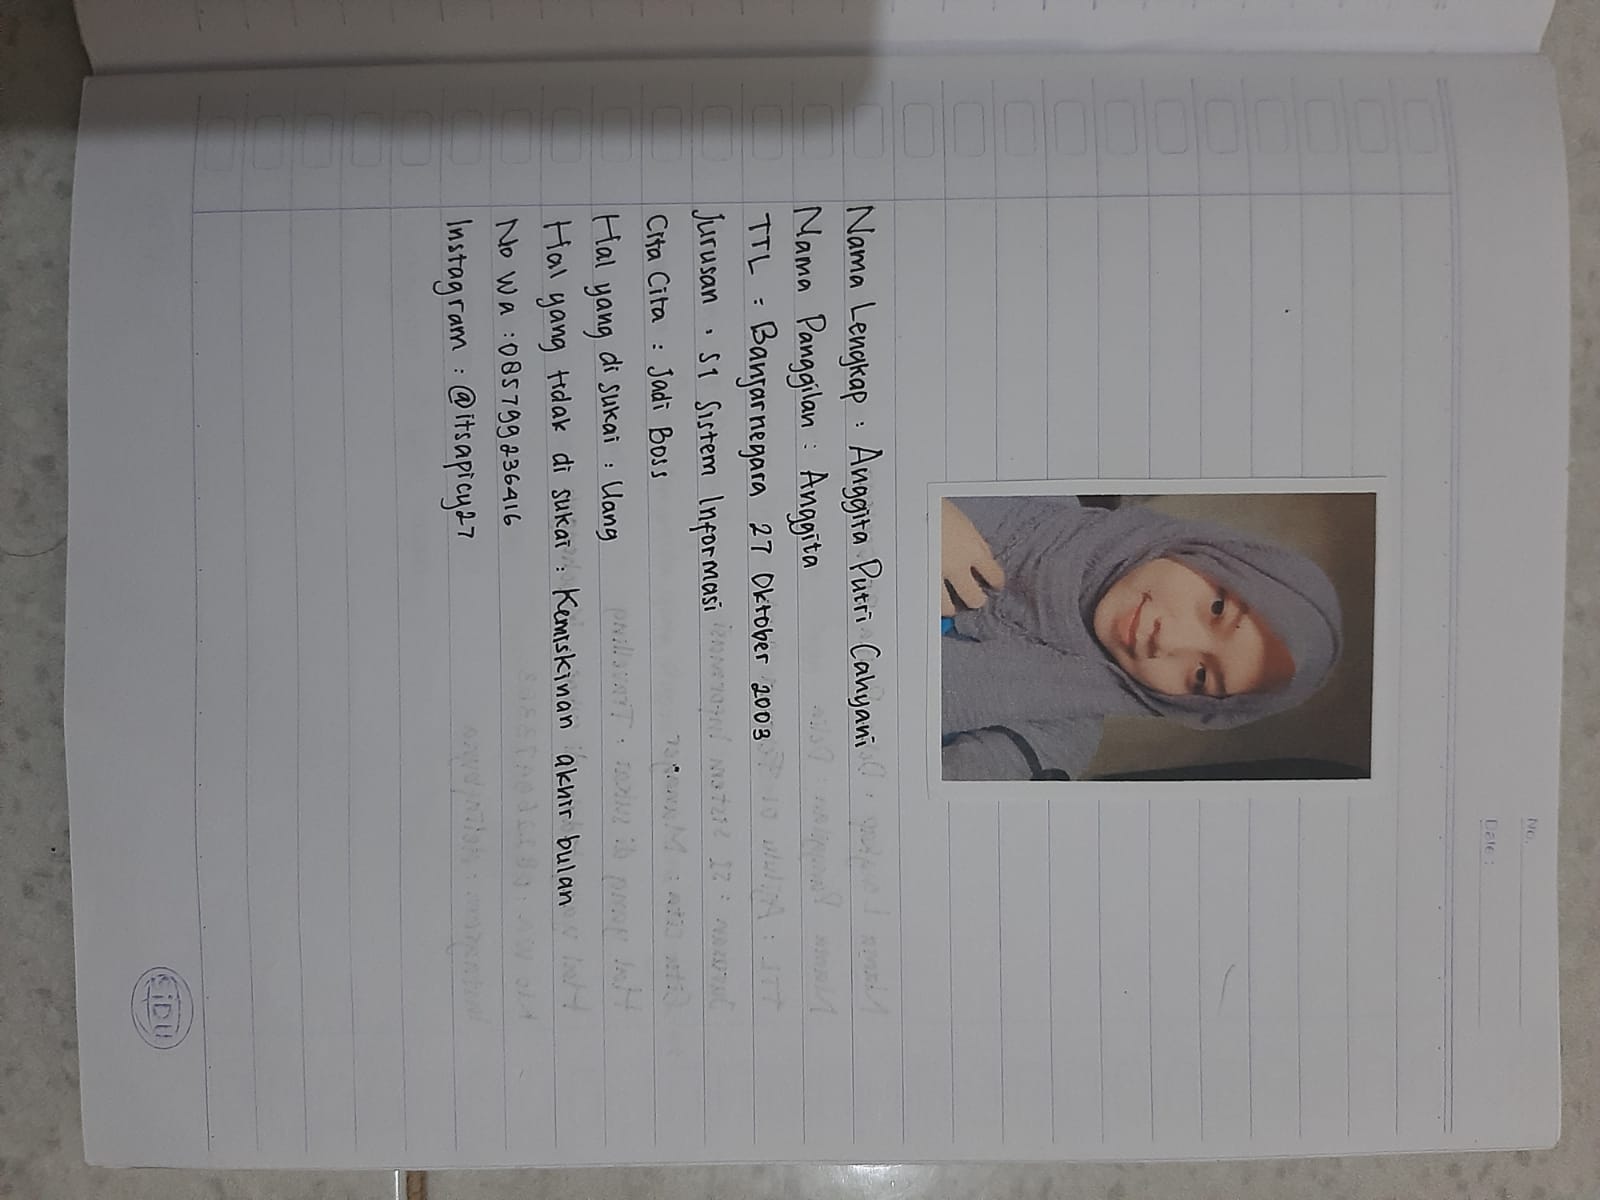 No.
Date :
Nama Lengkap : Anggita Putri Cahyani
Nama Panggilan : Anggita
TTL : Banjarnegara 27 Oktober 2003
Jurusan : S1 Sistem Informasi
Cita Cita : Jadi Boss
Hal yang di sukai : Uang
Hal yang tidak di sukai : Kemiskinan akhir bulan
No Wa : 085799236416
Instagram : @itsapicy27
SiDU